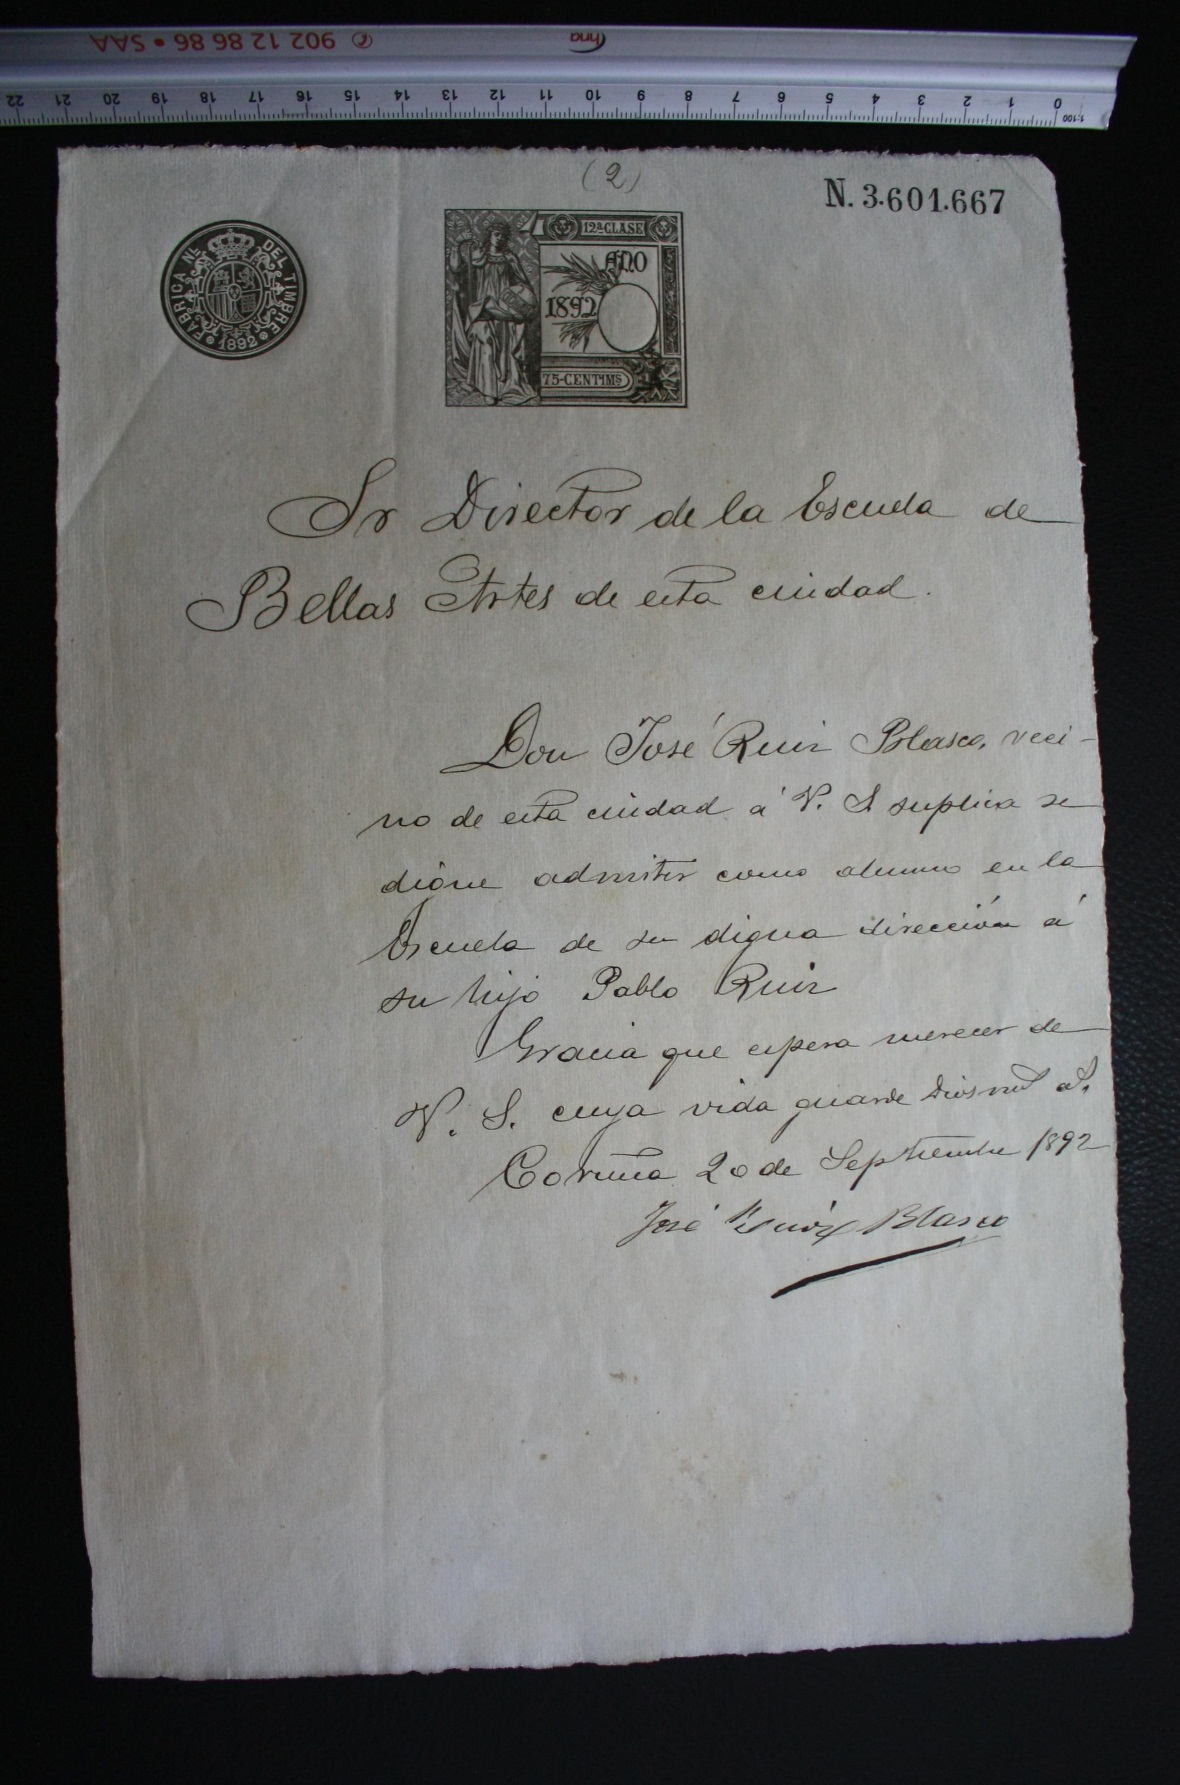 ✆ 902 12 86 86 • SAA
22 21 20 19 18 17 16 15 14 13 12 11 10 9 8 7 6 5 4 3 2 1 0 1:100
(2)
N. 3.601.667
FABRICA NL. DEL TIMBRE
1892
12ª CLASE
AÑO
1892
75-CENTIMS
Sr Director de la Escuela de
Bellas Artes de esta ciudad.
Don José Ruiz Blasco, veci-
no de esta ciudad á V. S suplica se
digne admitir como alumno en la
Escuela de su digna dirección á
su hijo Pablo Ruiz
Gracia que espera merecer de
V. S. cuya vida guarde Dios ms. as.
Coruña 20 de Septiembre 1892
José Ruiz Blasco